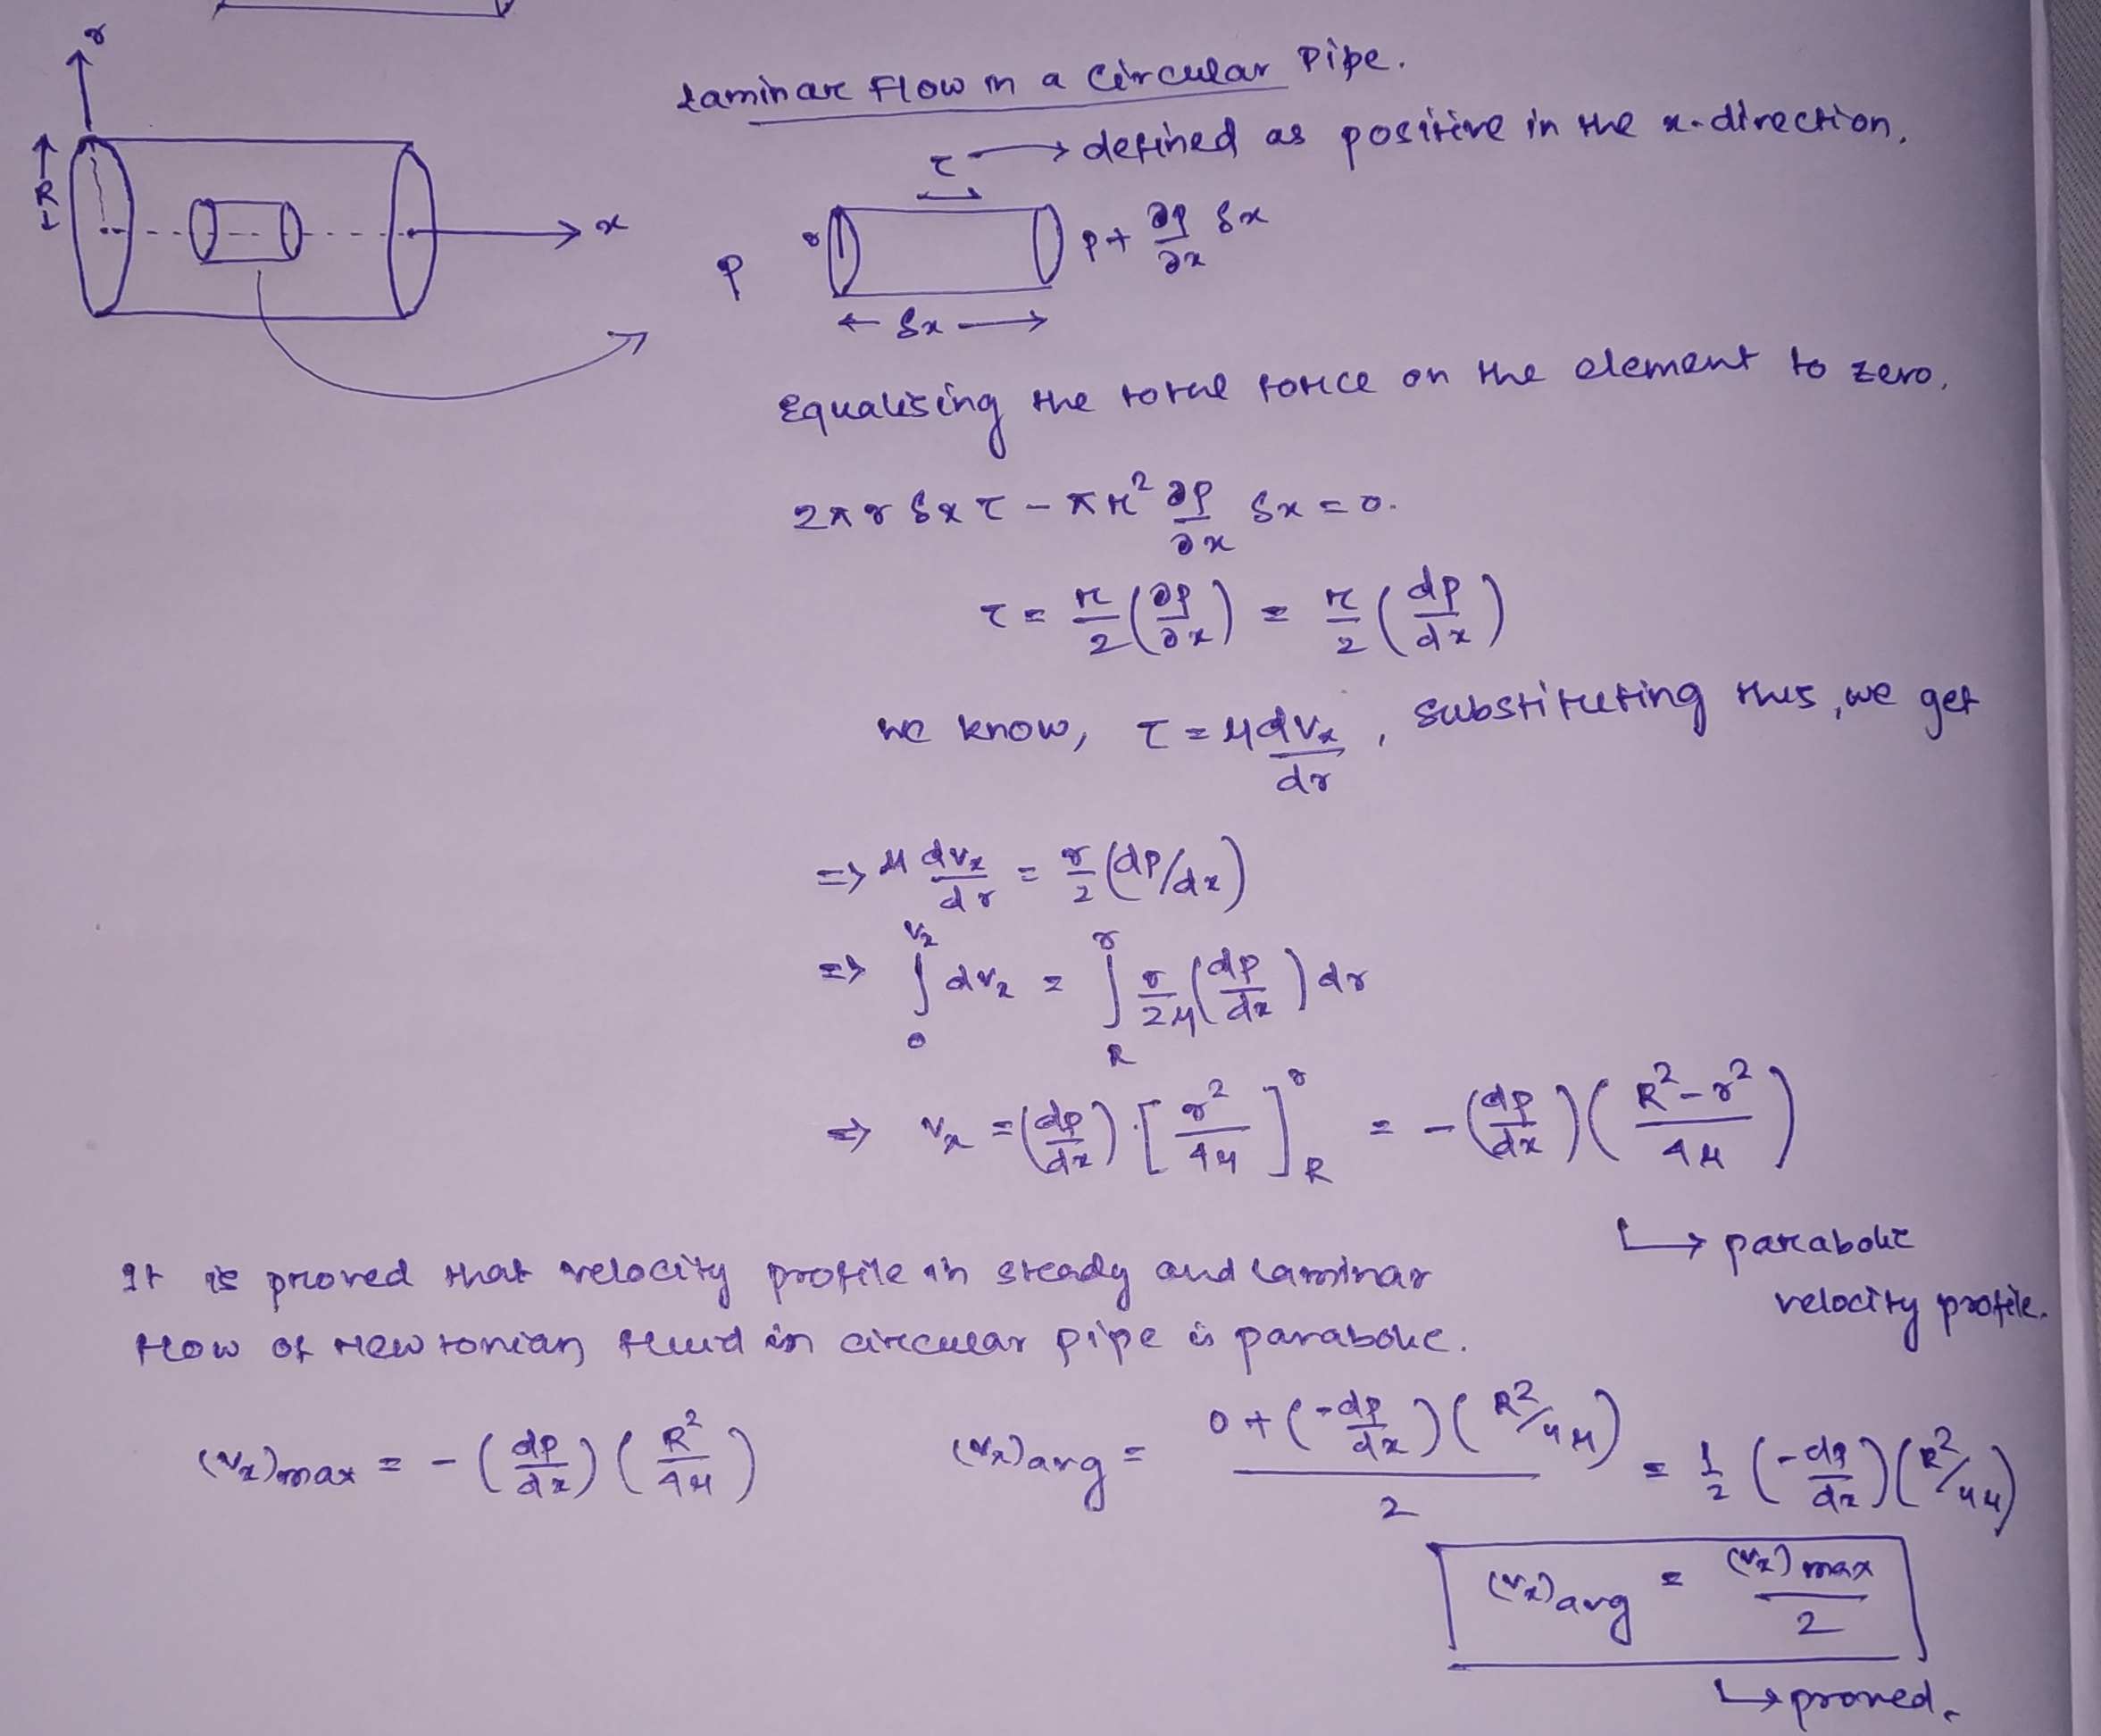 r
R
x
Laminar Flow in a Circular Pipe.
τ → defined as positive in the x-direction.
p
r
p + ∂p/∂x δx
← δx →
Equalising the total force on the element to zero.
2πr δx τ - πr² ∂p/∂x δx = 0.
τ = r/2 (∂p/∂x) = r/2 (dp/dx)
we know, τ = μ dvₓ/dr , substituting this, we get
=> μ dvₓ/dr = r/2 (dp/dx)
=> ∫₀^vₓ dvₓ = ∫_R^r r/2μ (dp/dx) dr
=> vₓ = (dp/dx) · [r²/4μ]_R^r = - (dp/dx) (R² - r²/4μ)
↳ parabolic
velocity profile.
It is proved that velocity profile in steady and laminar
flow of Newtonian fluid in circular pipe is parabolic.
(vₓ)max = - (dp/dx) (R²/4μ)
(vₓ)avg = 0 + (-dp/dx) (R²/4μ) / 2 = 1/2 (-dp/dx) (R²/4μ)
(vₓ)avg = (vₓ)max / 2
↳ proved.